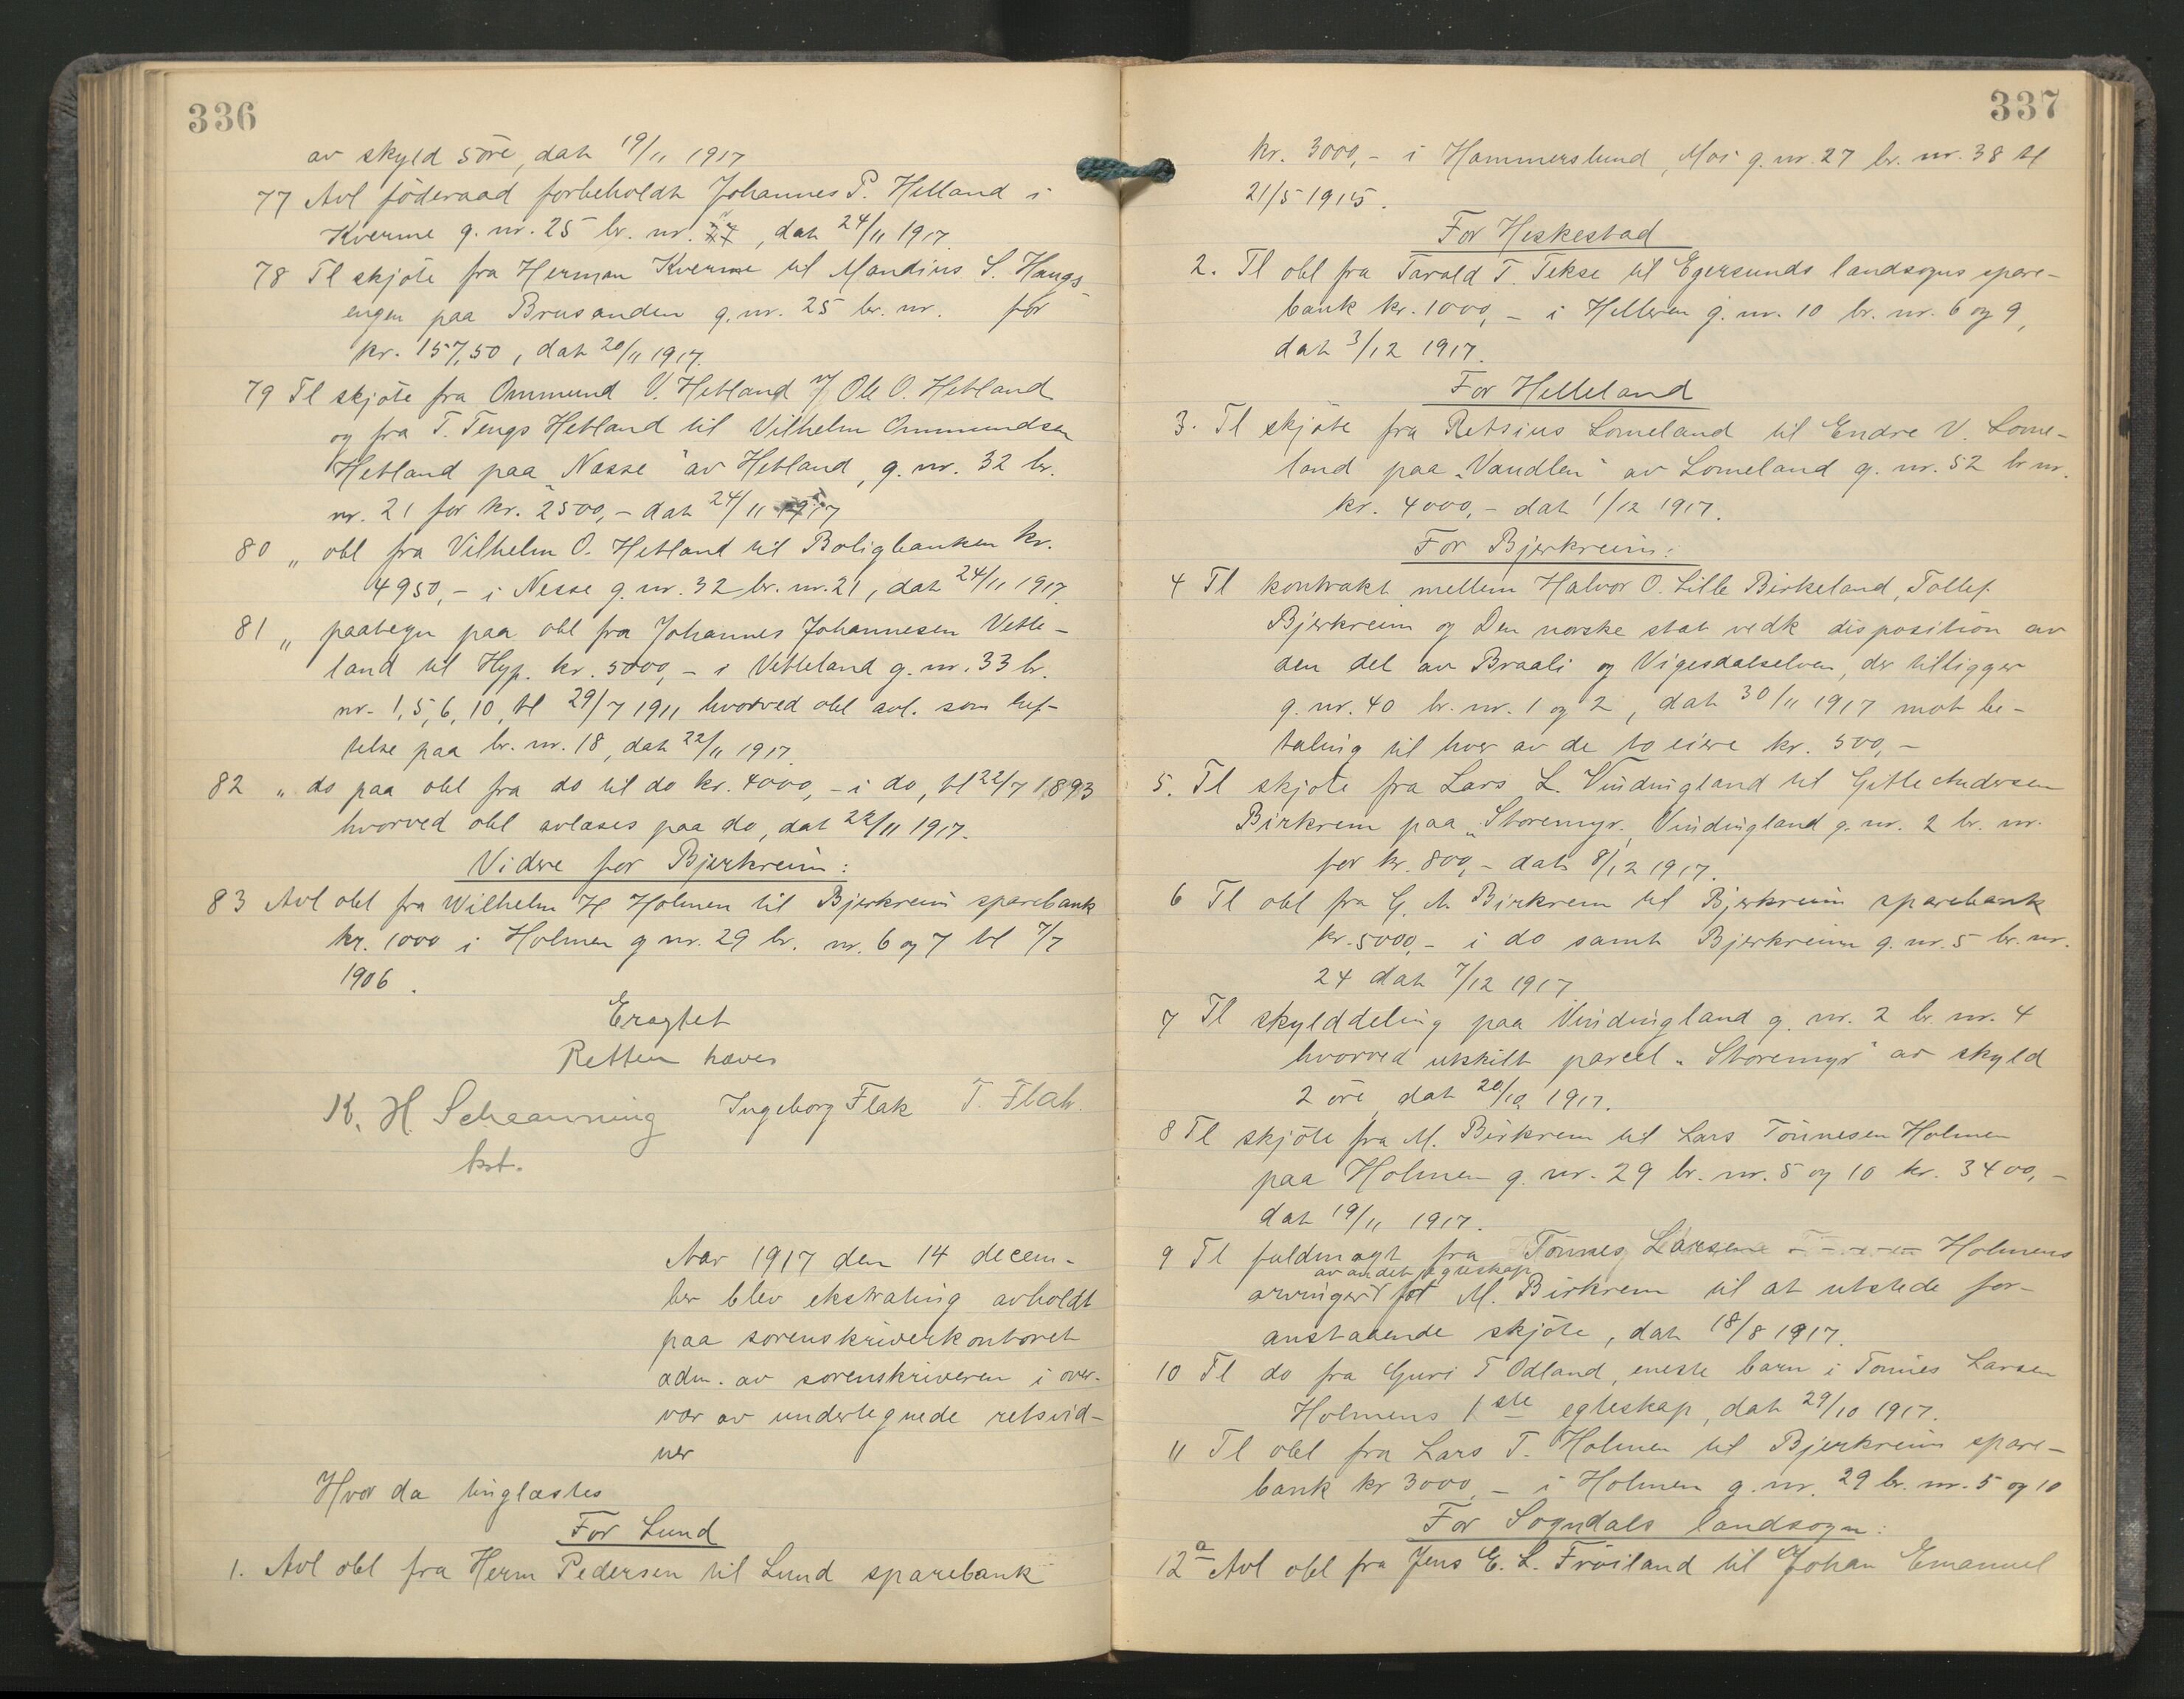 336
av skyld 5 øre, dat 19/11 1917
77 Avl föderaad forbeholdt Johannes P. Helland i
Kverme g. nr. 25 br. nr. , dat 24/11 1917
78 Tl skjöte fra Herman Kverme til Mandius S. Haugs-
engen paa Brusanden g. nr. 25 br. nr. for
kr. 157,50, dat 20/11 1917.
79 Tl skjöte fra Ommund V. Hetland v/ Ole O. Hetland
og fra T. Tengs Hetland til Vilhelm Ommundsen
Hetland paa "Nasse" av Hetland, g. nr. 32 br.
nr. 21 for kr. 2500,- dat 24/11 1917
80 " obl fra Vilhelm O. Hetland til Boligbanken kr.
4950,- i Nesse g. nr. 32 br. nr. 21, dat 24/11 1917.
81 " paategn paa obl fra Johannes Johannesen Vetle-
land til Hyp. kr. 5000,- i Vetleland g. nr. 33 br.
nr. 1, 5, 6, 10, tl 29/7 1911 hvorved obl avl. som hef-
telse paa br. nr. 18, dat 22/11 1917.
82 " do paa obl fra do til do kr. 4000,- i do, tl 22/7 1893
hvorved obl avlæses paa do, dat 22/11 1917.
Videre for Bjerkreim:
83 Avl obl fra Wilhelm H Holmen til Bjerkreim sparebank
kr. 1000 i Holmen g nr. 29 br. nr. 6 og 7 tl 7/7
1906.
Eragtet
Retten hæves
K. H. Scheanning Ingeborg Flak T. Flak.
kst.
Aar 1917 den 14 decem-
ber blev ekstrating avholdt
paa sorenskriverkontoret
adm. av sorenskriveren i over-
vær av undertegnede retsvid-
ner
Hvor da tinglæstes
For Lund
1. Avl obl fra Herm Pedersen til Lund sparebank
337
kr. 3000,- i Hammerslund, Moi g. nr. 27 br. nr. 38 tl
21/5 1915.
For Heskestad
2. Tl obl fra Tarald T. Tekse til Egersunds landsogns spare-
bank kr. 1000,- i Helleren g. nr. 10 br. nr. 6 og 9,
dat 3/12 1917.
For Helleland
3. Tl skjöte fra Retsius Lomeland til Endre V. Lome-
land paa "Vaudlen" av Lomeland g. nr. 52 br nr.
kr. 4000,- dat 1/12 1917.
For Bjerkreim:
4 Tl kontrakt mellem Halvor O. Lille Birkeland, Tollef
Bjerkreim og Den norske stat vedk disposition av
den del av Braali og Vigesdalselven, der tilligger
g. nr. 40 br. nr. 1 og 2, dat 30/11 1917 mot be-
taling til hver av de to eiere kr. 500,-
5. Tl skjöte fra Lars L. Vindingland til Gitle Andersen
Birkrem paa "Storemyr" Vindingland g. nr. 2 br. nr.
for kr. 800,- dat 8/12 1917.
6 Tl obl fra G. A. Birkrem til Bjerkreim sparebank
kr. 5000,- i do samt Bjerkreim g. nr. 5 br. nr.
24 dat 7/12 1917
7 Tl skylddeling paa Vindingland g. nr. 2 br. nr. 4
hvorved utskilt parcel "Storemyr" av skyld
2 öre, dat 20/10 1917.
8 Tl skjöte fra M. Birkrem til Lars Tönnesen Holmen
paa Holmen g. nr. 29 br. nr. 5 og 10 kr. 3400,-
dat 19/11 1917.
9 Tl fuldmagt fra Tönnes Larsen Holmens
av andet egteskap
arvinger for M. Birkrem til at utstede for-
anstaaende skjöte, dat 18/8 1917.
10 Tl do fra Guri T Odland, eneste barn i Tönnes Larsen
Holmens 1ste egteskap, dat 29/10 1917.
11 Tl obl fra Lars T. Holmen til Bjerkreim spare-
bank kr 3000,- i Holmen g. nr. 29 br. nr. 5 og 10
For Sogndals landsogn:
12a Avl obl fra Jens E. L. Fröiland til Johan Emanuel